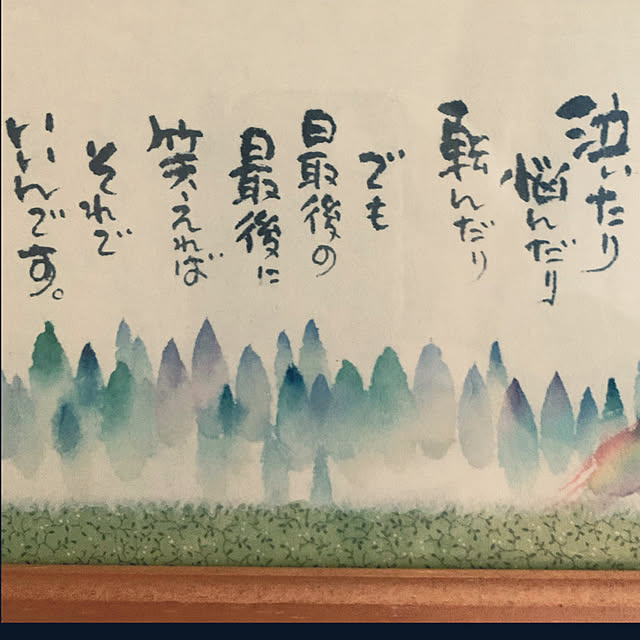 泣いたり
悩んだり
転んだり
でも
最後の
最後に
笑えれば
それで
いいんです。